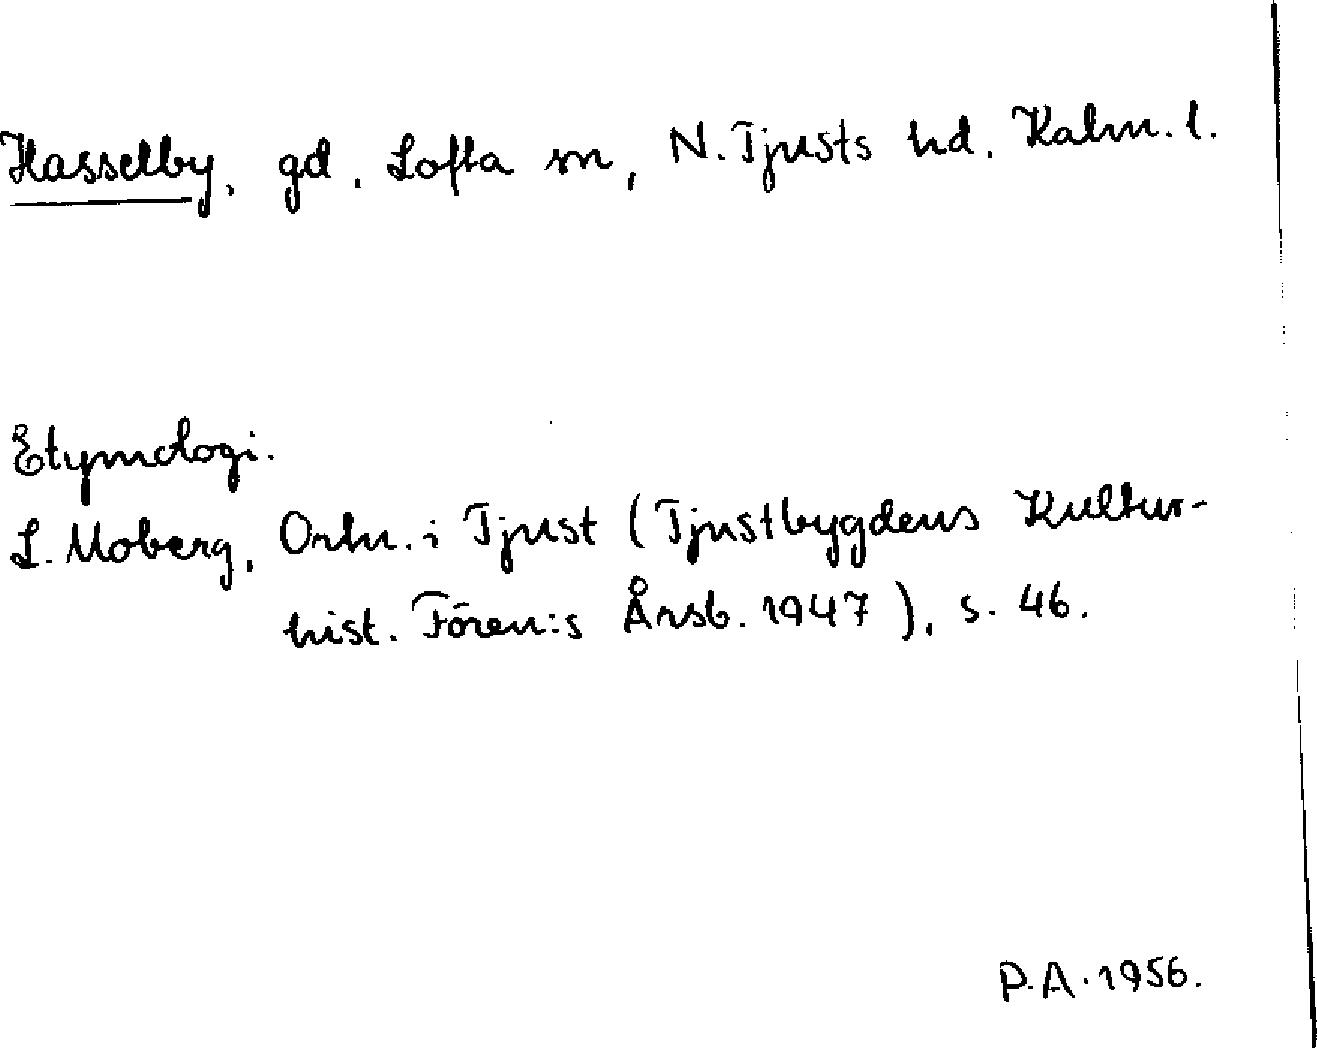 Hasselby, gd, Lofta sn, N. Tjusts hd. Kalm. l.
Etymologi.
L. Moberg, Ortn. i Tjust (Tjustbygdens Kultur-
hist. Fören:s Årsb. 1947), s. 46.
P.A. 1956.